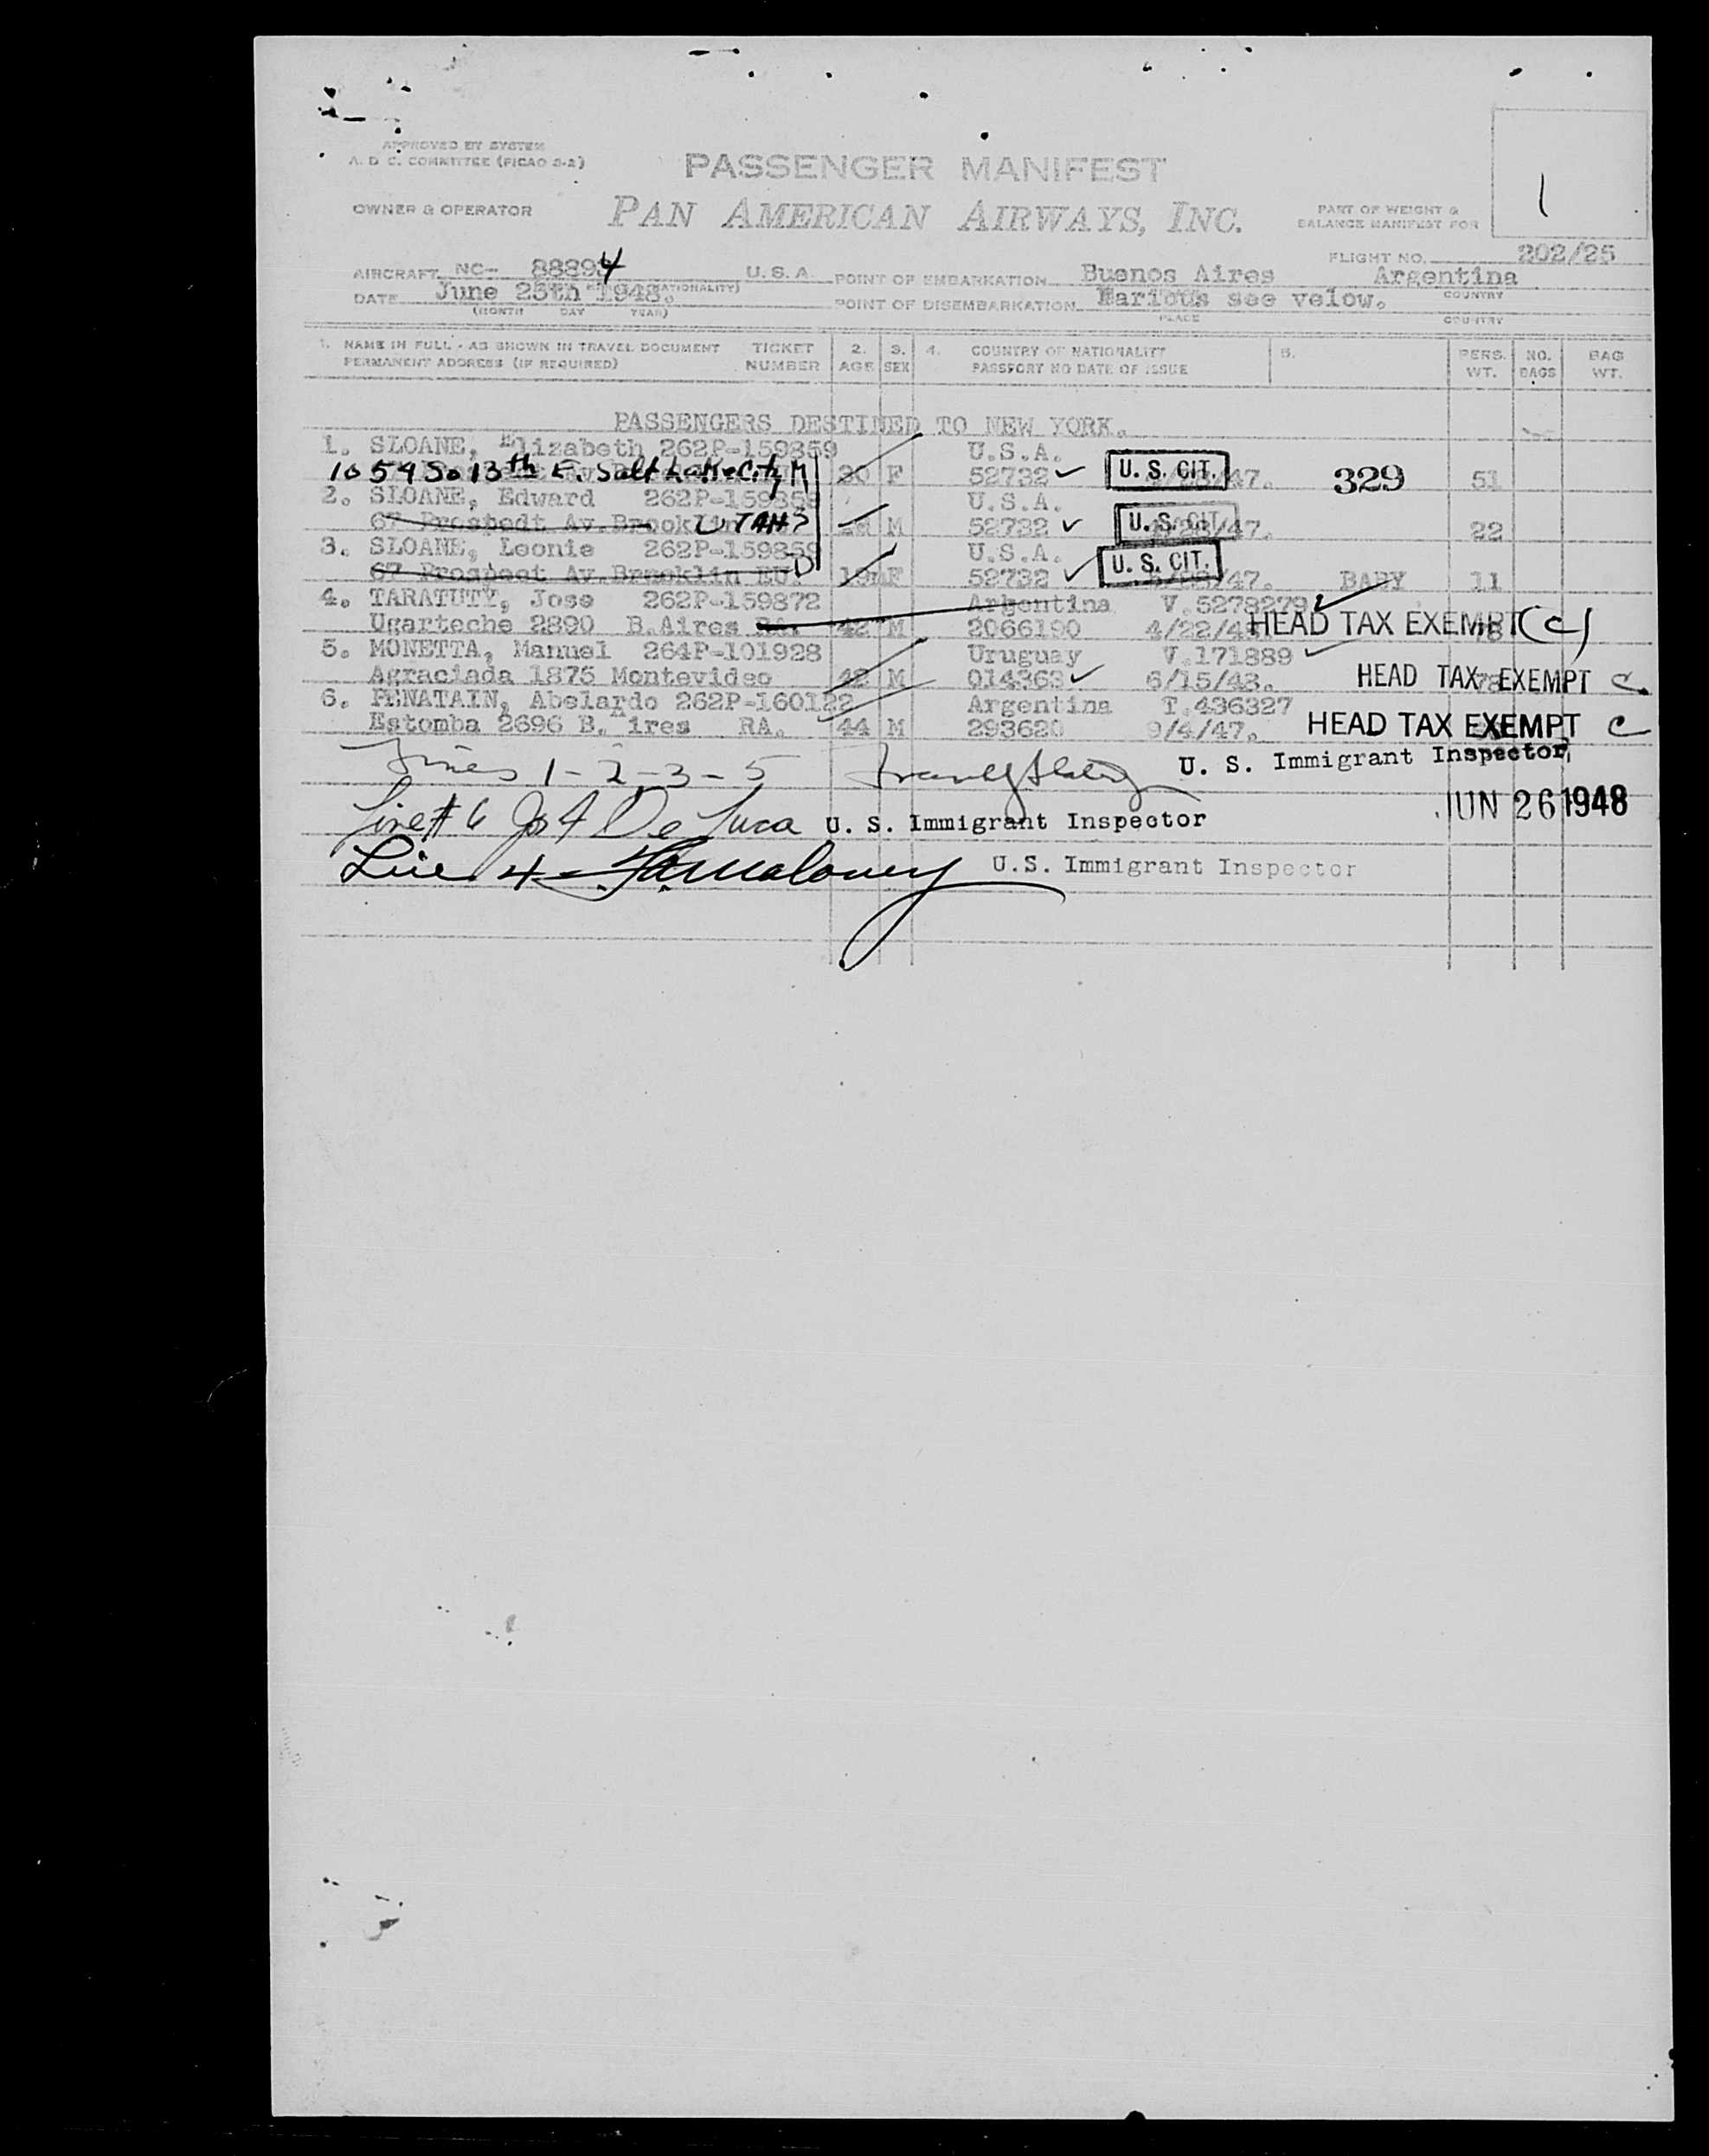 APPROVED BY SYSTEM
A. D C. COMMITTEE (PICAO 3-2)
PASSENGER MANIFEST
1
OWNER & OPERATOR
PAN AMERICAN AIRWAYS, INC.
PART OF WEIGHT &
BALANCE MANIFEST FOR
FLIGHT NO. 202/25
AIRCRAFT NC- 88894 U.S.A. POINT OF EMBARKATION Buenos Aires Argentina
(NATIONALITY) COUNTRY
DATE June 25th 1948. POINT OF DISEMBARKATION Various see velow.
(MONTH DAY YEAR) PLACE COUNTRY
1. NAME IN FULL - AS SHOWN IN TRAVEL DOCUMENT TICKET 2. 3. 4. COUNTRY OF NATIONALITY 5. PERS. NO. BAG
PERMANENT ADDRESS (IF REQUIRED) NUMBER AGE SEX PASSPORT NO DATE OF ISSUE WT. BAGS WT.
PASSENGERS DESTINED TO NEW YORK.
1. SLOANE, Elizabeth 262P-159859 U.S.A.
1054 So 13th E. Salt Lake City 30 F 52732 U. S. CIT. /47. 329 51
2. SLOANE, Edward 262P-159859 U.S.A.
67 Prospect Av. Brooklin UTAH M 52732 U. S. CIT. /47. 22
3. SLOANE, Leonie 262P-159859 U.S.A.
67 Prospect Av. Brooklin EU. F 52732 U. S. CIT. /47. BABY 11
4. TARATUTY, Jose 262P-159872 Argentina V.5278279
Ugarteche 2890 B.Aires RA. 42 M 2066190 4/22/4 HEAD TAX EXEMPT (C)
5. MONETTA, Manuel 264P-101928 Uruguay V.171889
Agraciada 1875 Montevideo 42 M 014363 6/15/43. HEAD TAX EXEMPT C.
6. PENATAIN, Abelardo 262P-160122 Argentina T.436327
Estomba 2696 B. Aires RA. 44 M 293620 9/4/47. HEAD TAX EXEMPT C
Lines 1-2-3-5 U. S. Immigrant Inspector
JUN 26 1948
Line # 6 Jos A De Luca U. S. Immigrant Inspector
Line 4 Maloney U.S. Immigrant Inspector